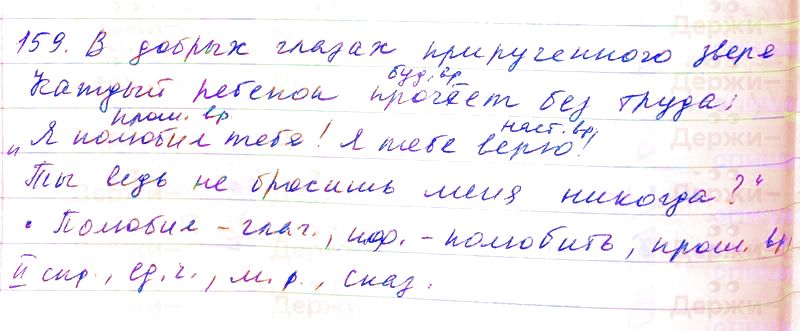 159. В добрых глазах прирученного зверя
буд. вр.
Каждый ребенок прочтёт без труда:
прош. вр наст. вр.
„Я полюбил тебя! Я тебе верю!
Ты ведь не бросишь меня никогда?"
• Полюбил – глаг., н.ф. – полюбить, прош. вр,
II спр., ед.ч., м.р., сказ.